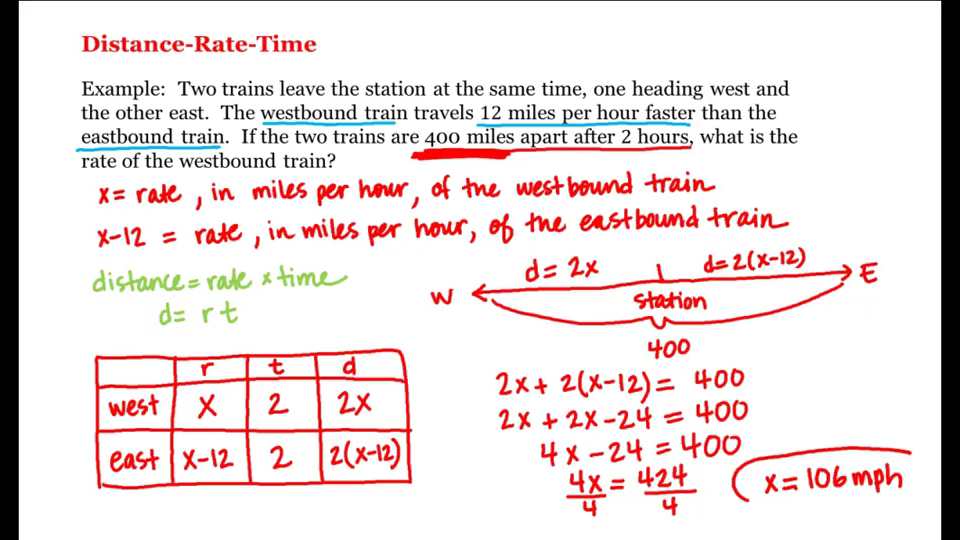 Distance-Rate-Time
Example: Two trains leave the station at the same time, one heading west and
the other east. The westbound train travels 12 miles per hour faster than the
eastbound train. If the two trains are 400 miles apart after 2 hours, what is the
rate of the westbound train?
x = rate, in miles per hour, of the westbound train
x-12 = rate, in miles per hour, of the eastbound train
distance = rate x time
d= r t
d= 2x d=2(x-12)
W E
station
400
r t d
west x 2 2x
east x-12 2 2(x-12)
2x + 2(x-12) = 400
2x + 2x - 24 = 400
4x - 24 = 400
4x = 424
4 4
x = 106 mph